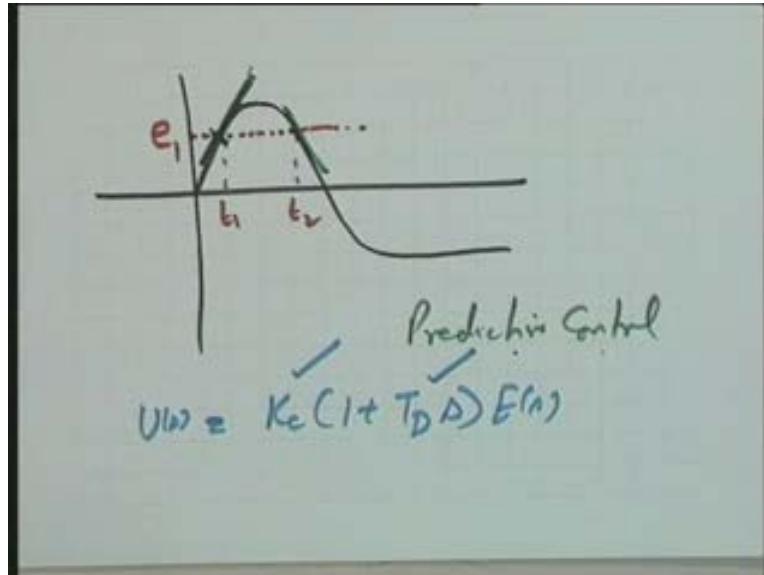 e₁
t₁ t₂
Predictive Control
U(s) = Kc (1 + T_D s) E(s)